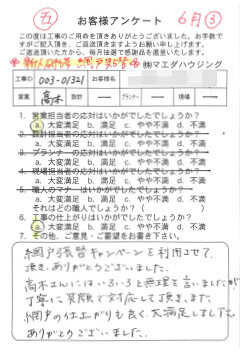 五 お客様アンケート 6月③
この度は工事のご用命を頂きありがとうございました。お手数で
すがご記入頂き、ご返送頂きますようお願い申し上げます。
ご返送頂いた方から、毎月抽選で感謝品を進呈いたします。
網戸張替
㈱マエダハウジング
工事ID 003-01321 お客様名
営業 高木 設計 プランナー 現場
1. 営業担当者の応対はいかがでしたでしょうか?
a)大変満足 b)満足 c)やや不満 d)不満
2. 設計担当者の応対はいかがでしたでしょうか?
a)大変満足 b)満足 c)やや不満 d)不満
3. プランナーの応対はいかがでしたでしょうか?
a)大変満足 b)満足 c)やや不満 d)不満
4. 現場担当者の応対はいかがでしたでしょうか?
a)大変満足 b)満足 c)やや不満 d)不満
5. 職人のマナーはいかがでしたでしょうか?
a)大変満足 b)満足 c)やや不満 d)不満
それはどの職人でしょうか?( )
6. 工事の仕上がりはいかがでしたでしょうか?
a)大変満足 b)満足 c)やや不満 d)不満
7. その他、ご意見・ご要望をお書き下さい。
網戸張替キャンペーンを利用させて
頂きありがとうございました。
高木さんにはいろいろと無理を言いましたが
丁寧に笑顔で対応して頂きました。
網戸の仕上がりも良く、大満足しました。
ありがとうございました。